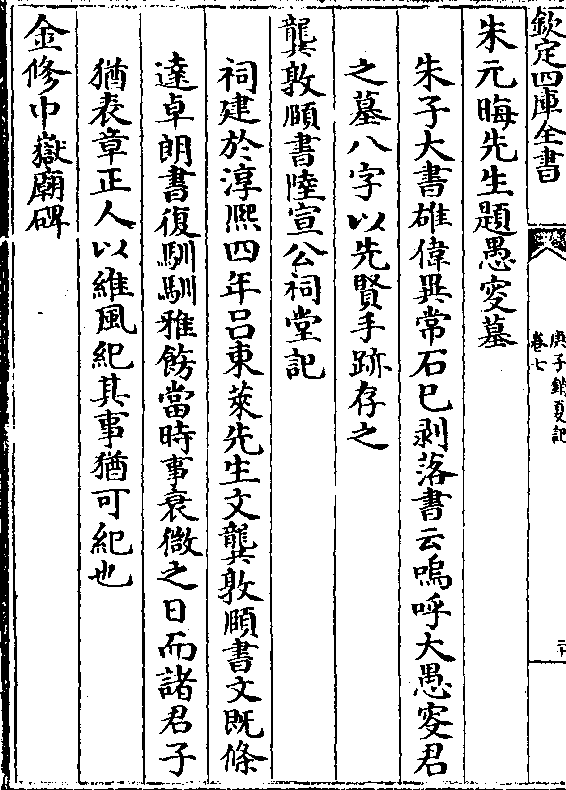 欽定四庫全書
庚子銷夏記
卷七
二十
朱元晦先生題愚叜墓
朱子大書雄偉異常石已剥落書云嗚呼大愚叜君
之墓八字以先賢手跡存之
龔敦頤書陸宣公祠堂記
祠建於淳熙四年吕東萊先生文龔敦頤書文既條
達卓朗書復馴馴雅飭當時事衰微之日而諸君子
猶表章正人以維風紀其事猶可紀也
金修中嶽廟碑